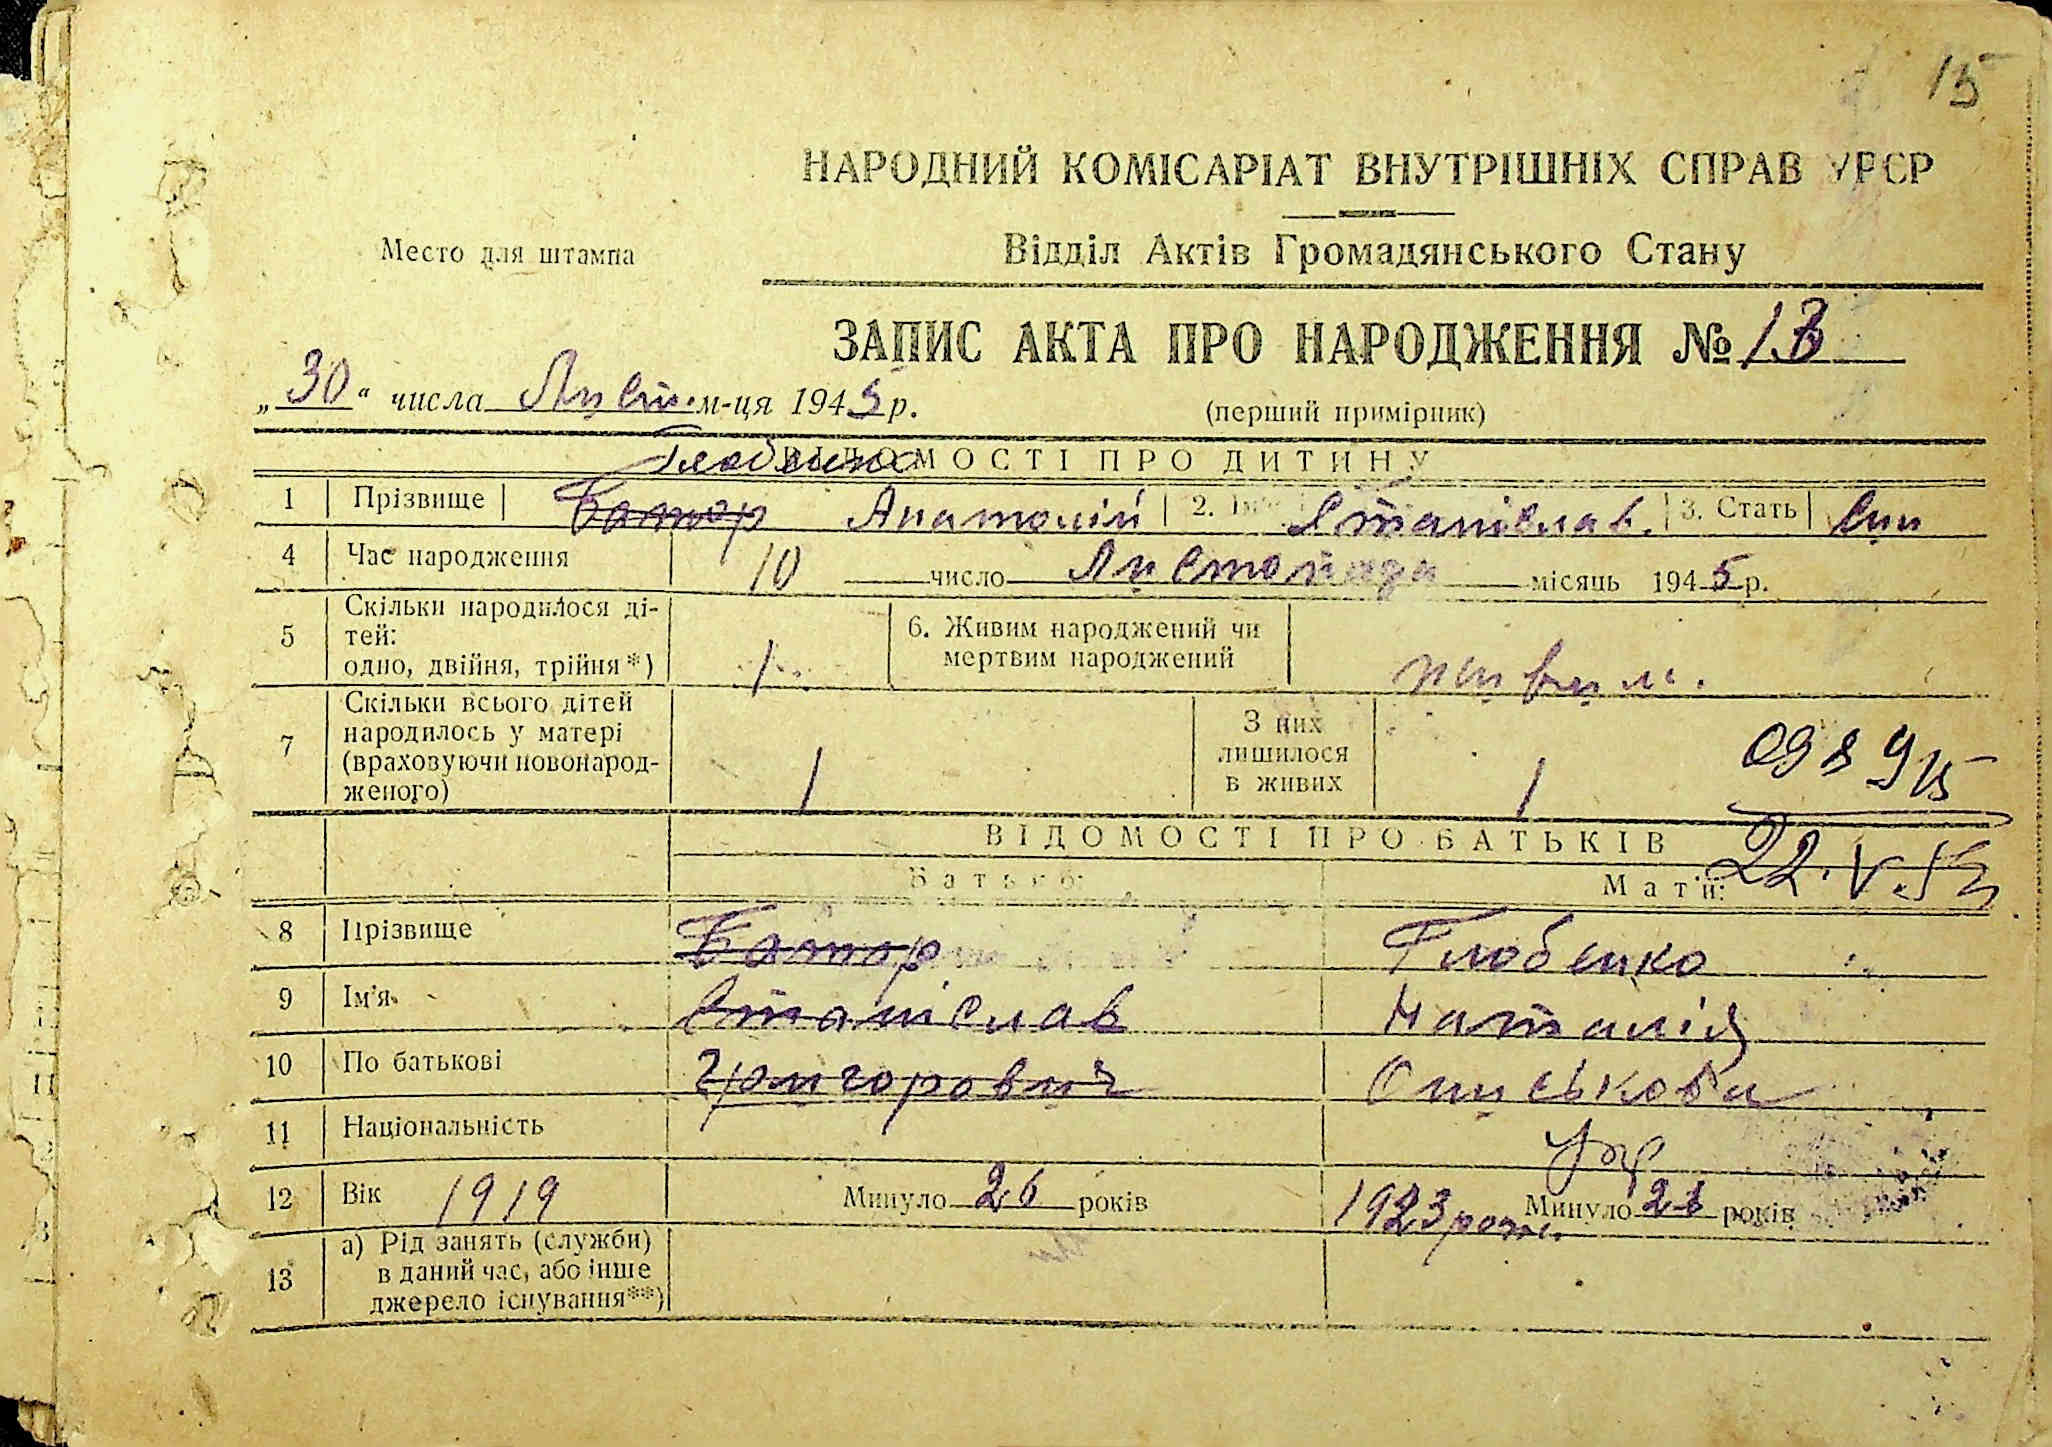 15
НАРОДНИЙ КОМІСАРІАТ ВНУТРІШНІХ СПРАВ УРСР
Место для штампа
Відділ Актів Громадянського Стану
ЗАПИС АКТА ПРО НАРОДЖЕННЯ №
„30“ числа Лист. м-ця 1945 р.
(перший примірник)
ВІДОМОСТІ ПРО ДИТИНУ
1 Прізвище Батор Анатолій 2. Станіслав. 3. Стать Син
4 Час народження 10 число Листопада місяць 1945 р.
5 Скільки народилося ді-
тей:
одно, двійня, трійня*) 1
6. Живим народжений чи
мертвим народжений живим.
7 Скільки всього дітей
народилось у матері
(враховуючи новонарод-
женого) 1
З них
лишилося
в живих 1
ВІДОМОСТІ ПРО БАТЬКІВ
22.V.
Батько: Мати:
8 Прізвище Батор Глобенко
9 Ім'я Станіслав Наталія
10 По батькові
11 Національність Укр
12 Вік 1919 Минуло 26 років 1923 рож. Минуло років
13 а) Рід занять (служби)
в даний час, або інше
джерело існування**)